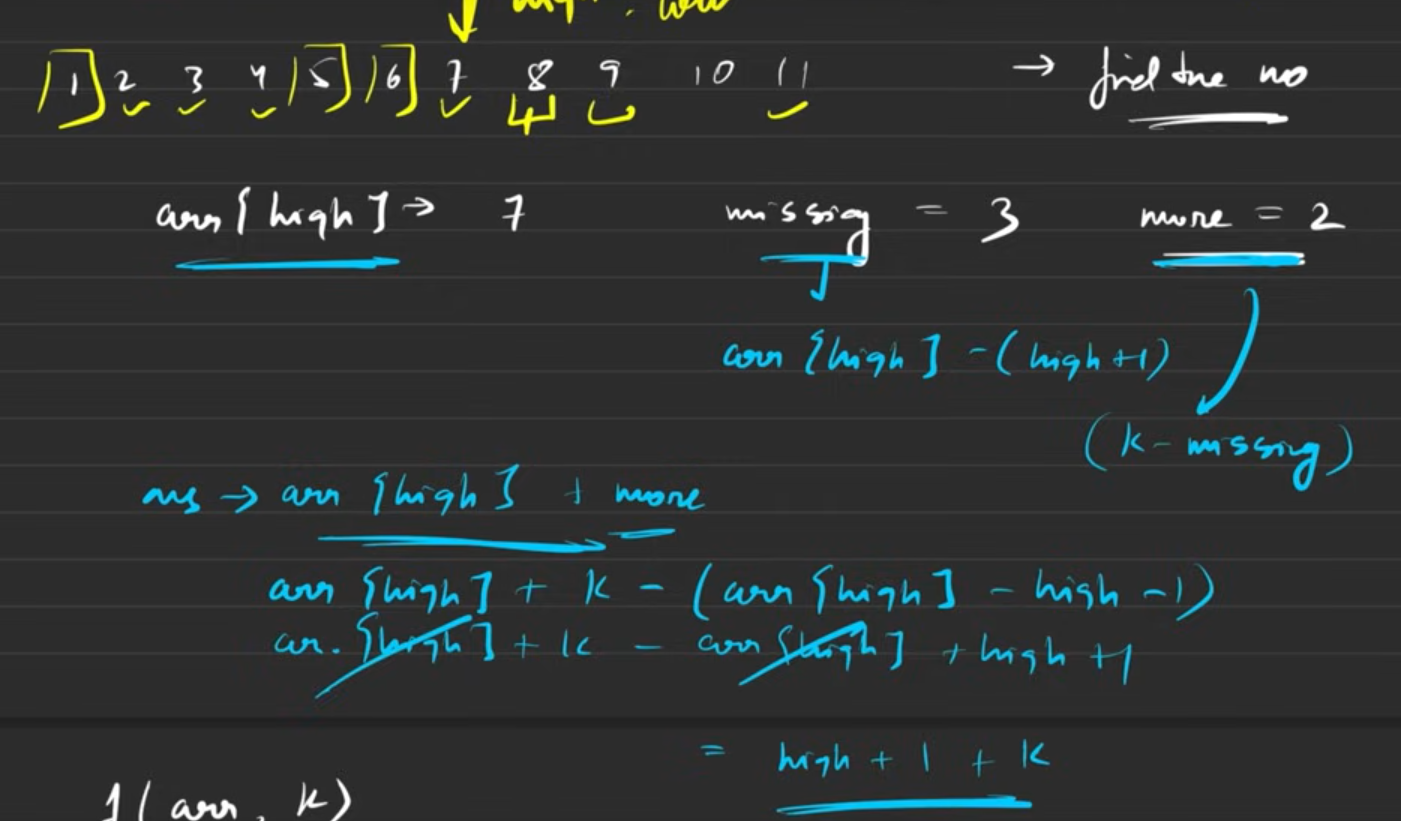 1 2 3 4 5 6 7 8 9 10 11 → find the no
arr[high] → 7 missing = 3 more = 2
arr[high] - (high+1)
(k - missing)
ans → arr[high] + more
arr[high] + k - (arr[high] - high - 1)
arr[high] + k - arr[high] + high + 1
= high + 1 + k
f(arr, k)